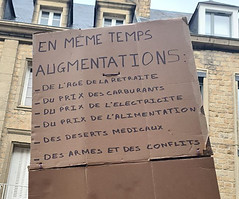 EN MÊME TEMPS
AUGMENTATIONS:
- DE L'AGE DE LA RETRAITE
- DU PRIX DES CARBURANTS
- DU PRIX DE L'ELECTRICITE
- DU PRIX DE L'ALIMENTATION
- DES DESERTS MEDICAUX
- DES ARMES ET DES CONFLITS